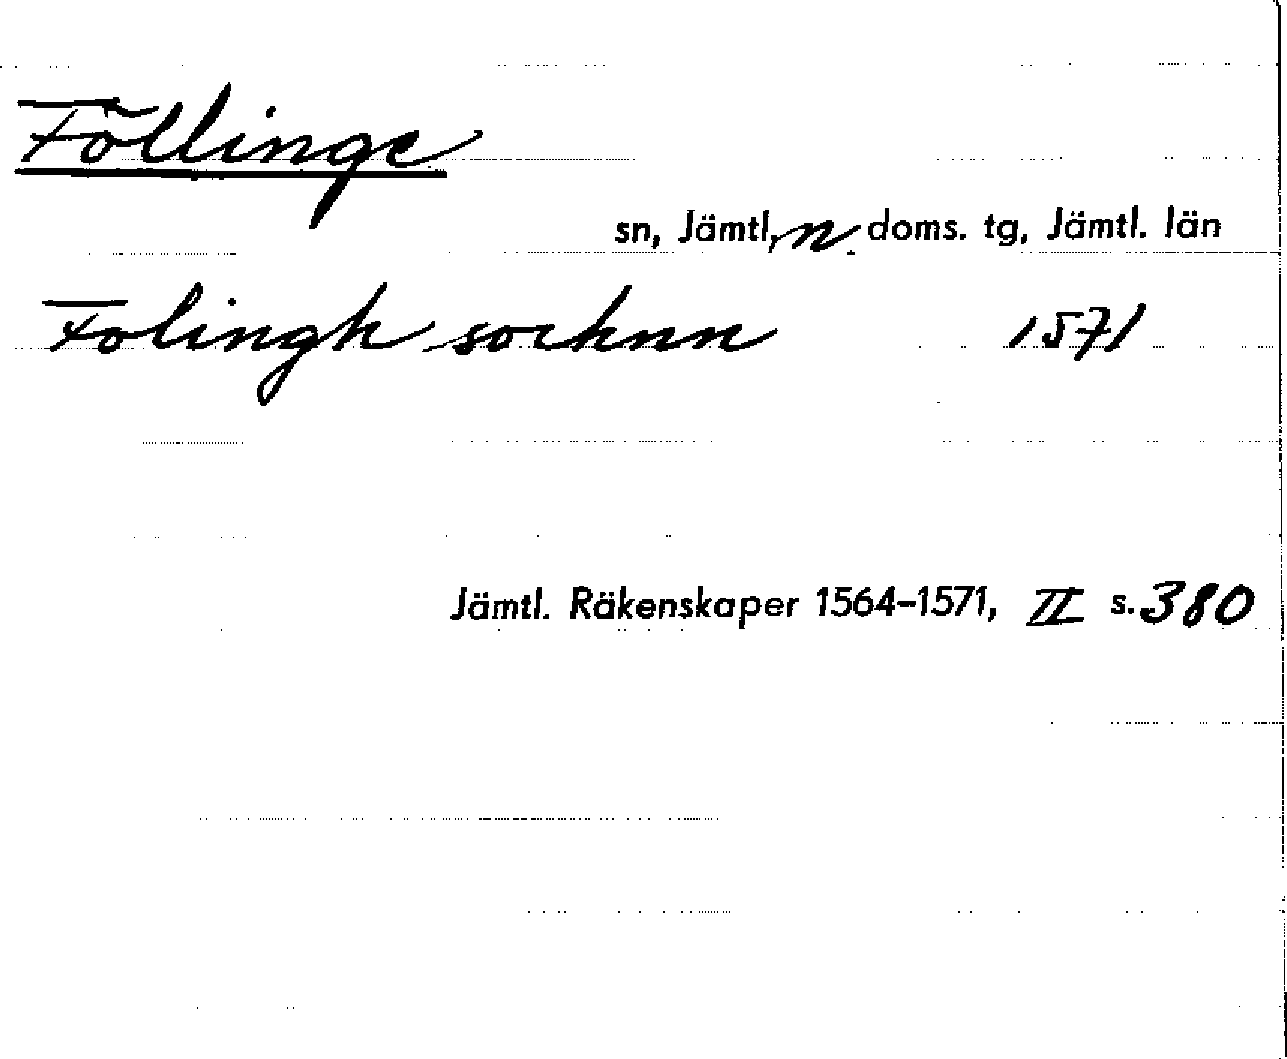 Föllinge
sn, Jämtl, n doms. tg, Jämtl. län
Folingh socknn 1571
Jämtl. Räkenskaper 1564-1571, II s. 380